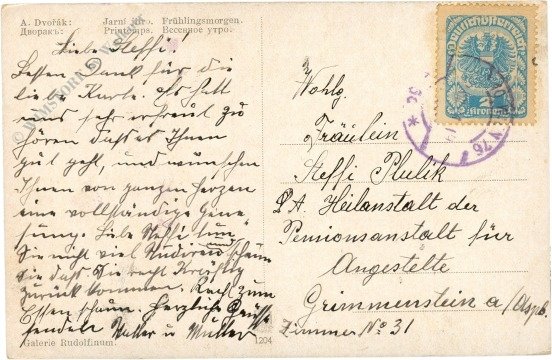 A. Dvořák: Jarní jitro. Frühlingsmorgen.
Дворакъ: Printemps. Весеннее утро.
Liebe Steffi!
Besten Dank für die
liebe Karte. Es hat
uns sehr erfreut zu
hören dass es Ihnen
gut geht, und wünschen
Ihnen von ganzen Herzen
eine vollständige Gene-
sung. Liebe Steffi tun
Sie nicht viel studieren und schauen
Sie dass Sie recht kräftig
zurück kommen. Recht zum
Essen schaun. Herzliche Grüsse
sendet Vatter u Mutter
Galerie Rudolfinum. 1204
Deutschösterreich
2 Kronen
Wohlg.
Fräulein
Steffi Plulik
P.A. Heilanstalt der
Pensionsanstalt für
Angestelte
Grimmenstein a/Aspb.
Zimmer No 31